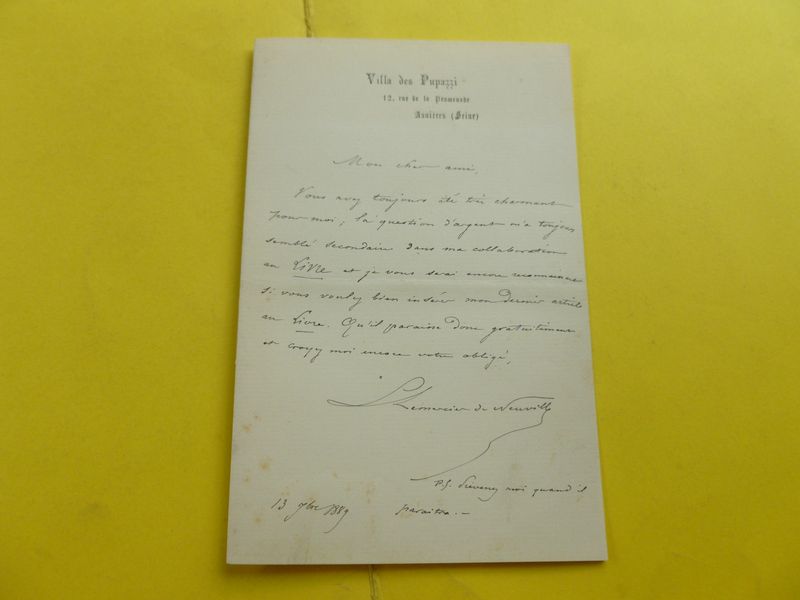 Villa des Pupazzi
12, rue de la Promenade
Asnières (Seine)
Mon cher ami,
Vous avez toujours été très charmant
pour moi ; la question d'argent m'a toujours
semblé secondaire dans ma collaboration
au Livre et je vous serai encore reconnaissant
si vous voulez bien insérer mon dernier article
au Livre. Qu'il paraisse donc gratuitement
et croyez moi encore votre obligé,
L Lemercier de Neuville
P.S. Prévenez moi quand il
paraitra. —
13 9bre 1889